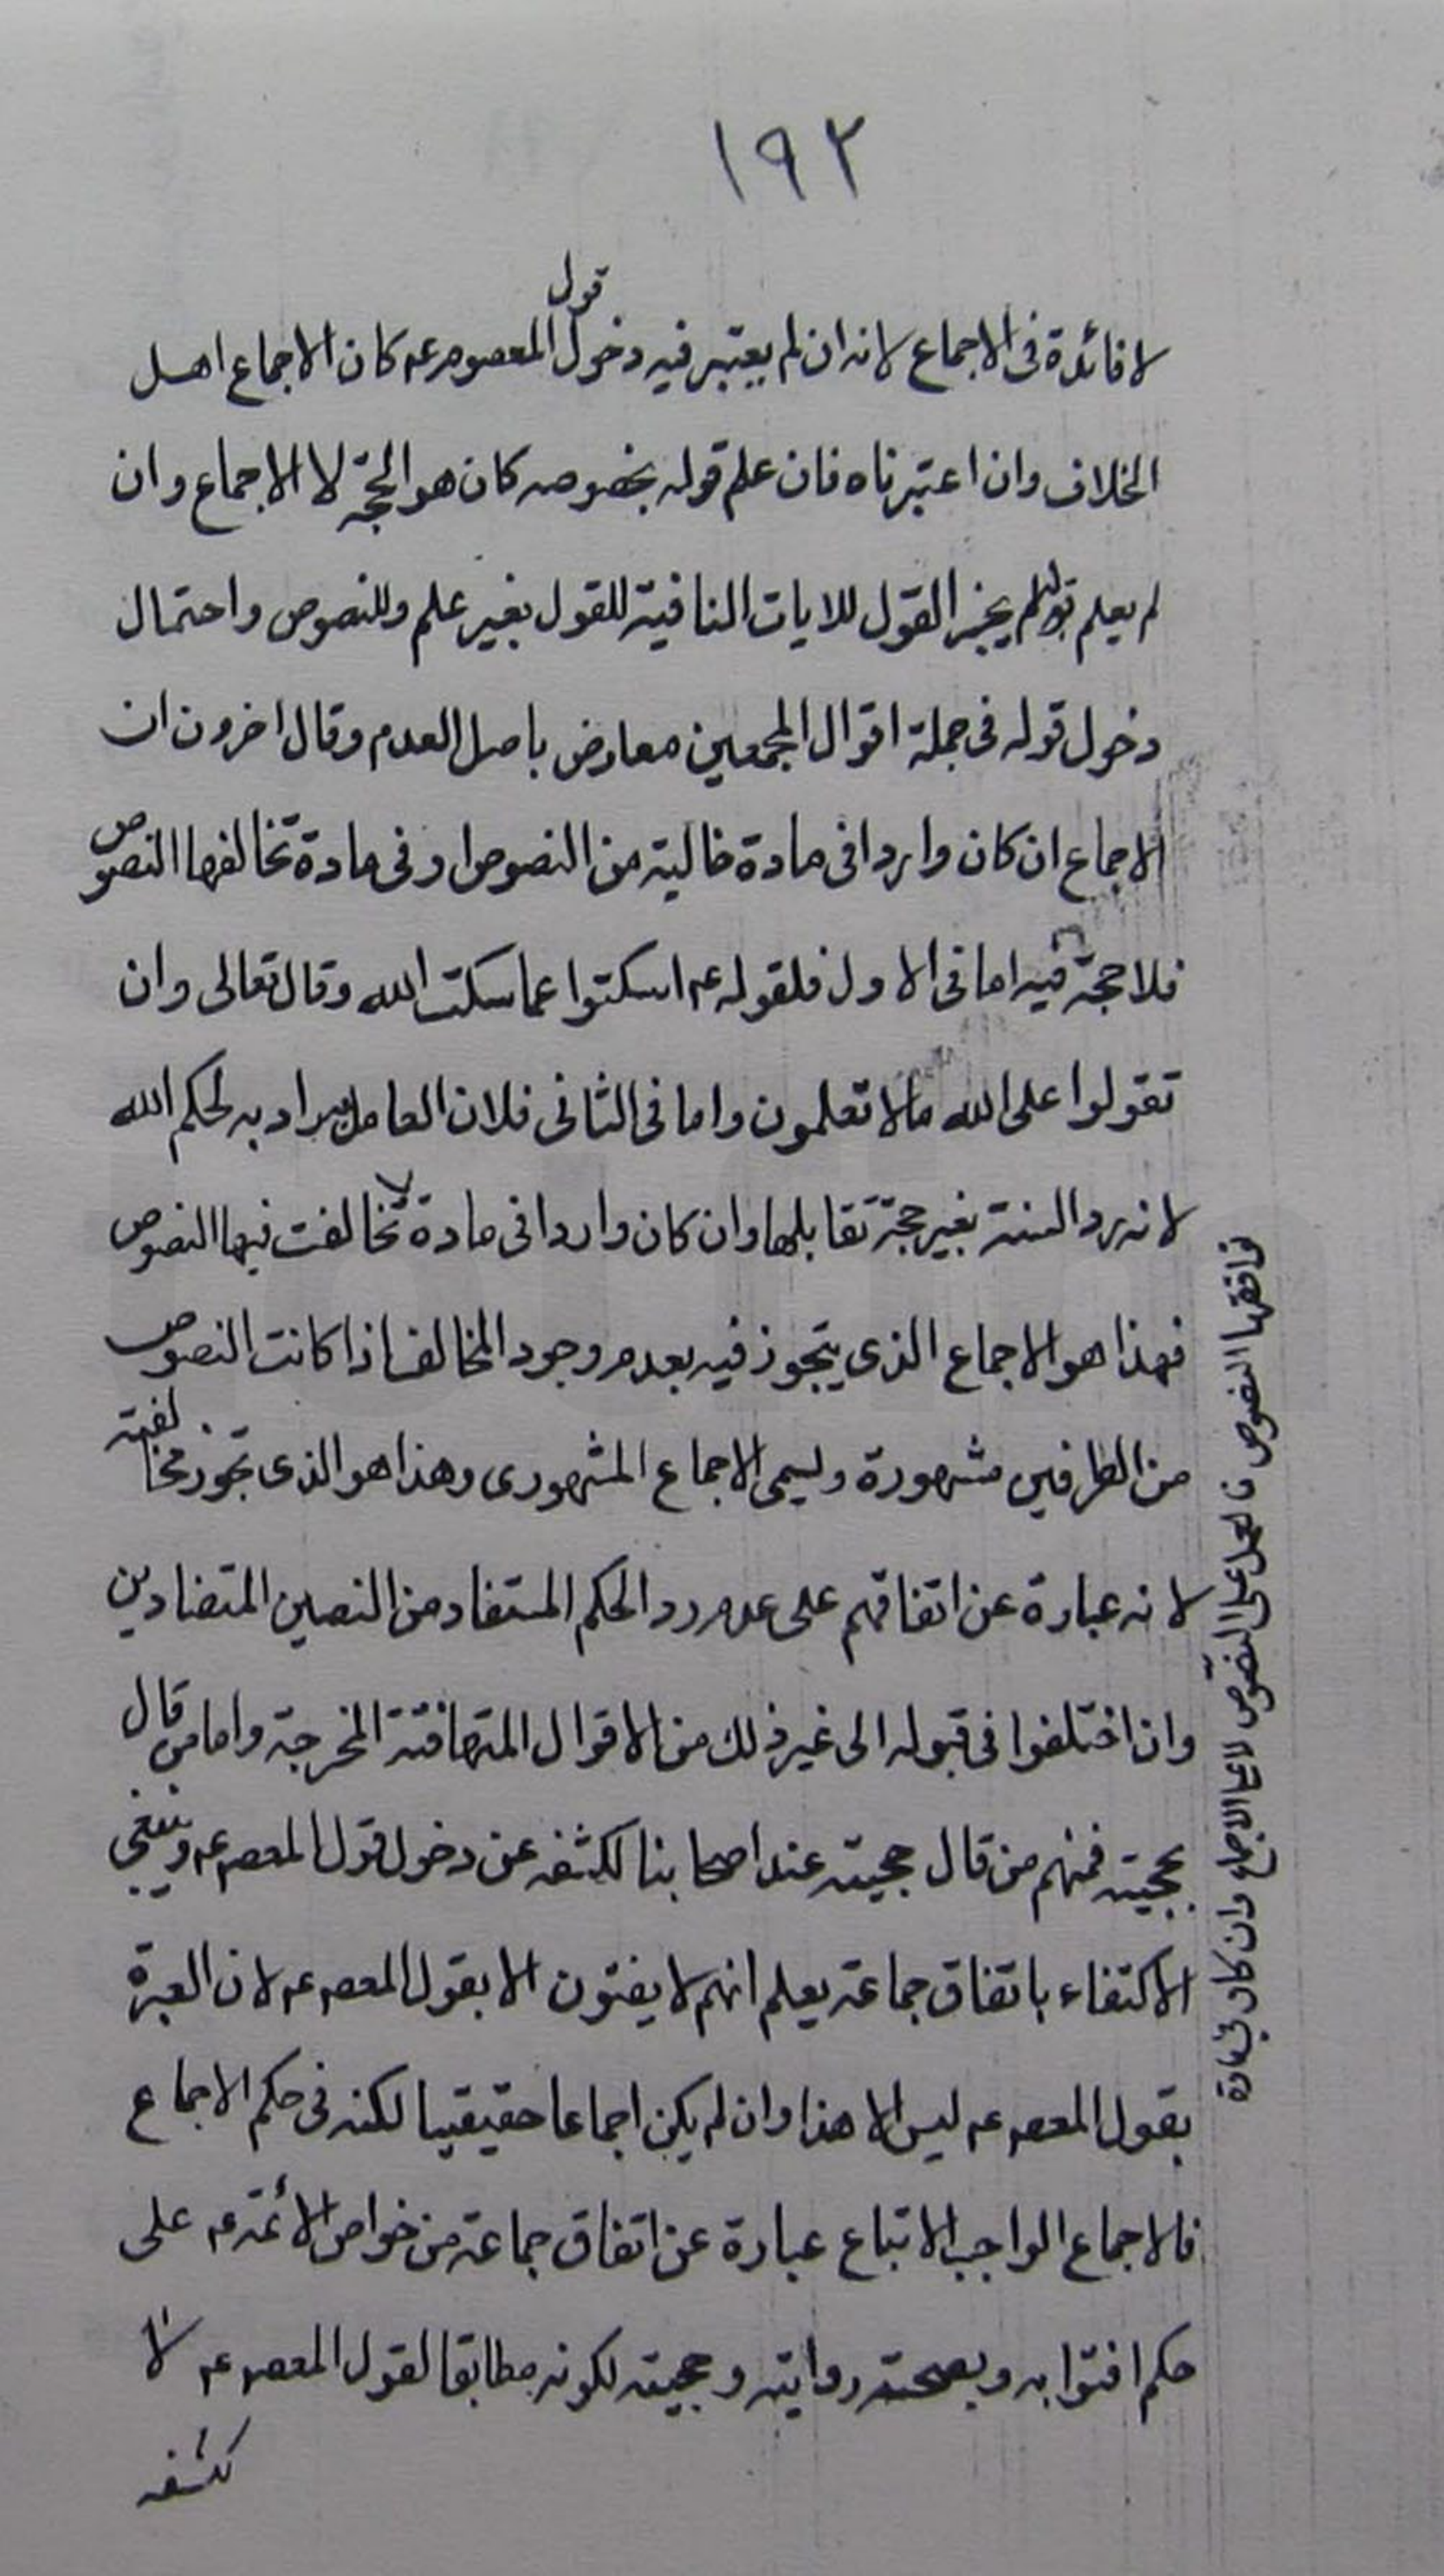 ١٩٢
لا فائدة فى الاجماع لانه ان لم يعتبر فيه دخول قول المعصوم عه كان الاجماع اهل
الخلاف وان اعتبرناه فان علم قوله بخصوصه كان هو الحجة لا الاجماع وان
لم يعلم قوله لم يجز القول للايات النافية للقول بغير علم وللنصوص واحتمال
دخول قوله فى جملة اقوال المجمعين معارض باصل العدم وقال اخرون ان
الاجماع ان كان واردا فى مادة خالية من النصوص او فى مادة تخالفها النصوص
فلا حجة فيه اما فى الاول فلقوله عه اسكتوا عما سكت الله وقال تعالى وان
تقولوا على الله مالا تعلمون واما فى الثانى فلان العامل به راد به لحكم الله
لانه رد السنة بغير حجة تقابلها وان كان واردا فى مادة لا تخالفت فيها النصوص
فهذا هو الاجماع الذى يتجوز فيه بعدم وجود المخالف اذا كانت النصوص
من الطرفين مشهورة ويسمى الاجماع المشهورى وهذا هو الذى تجوز مخالفته
لانه عبارة عن اتفاقهم على عدم رد الحكم المستفاد من النصين المتضادين
وان اختلفوا فى قبوله الى غير ذلك من الاقوال المتهافتة المخرجة واما من قال
بحجيته فمنهم من قال حجيته عند اصحابنا لكشفه عن دخول قول المعصم عه وينبغى
الاكتفاء باتفاق جماعة يعلم انهم لا يفتون الا بقول المعصم عه لان العبرة
بقول المعصم عه ليس الا هذا وان لم يكن اجماعا حقيقيا لكنه فى حكم الاجماع
فالاجماع الواجب الاتباع عبارة عن اتفاق جماعة من خواص الأئمة عه على
حكم افتوا به وبصحة روايته وحجيته لكونه مطابقا لقول المعصم عه لا
كشفه
توافقها النصوص فالعمل على النصوص لا على الاجماع وان كان فى مادة